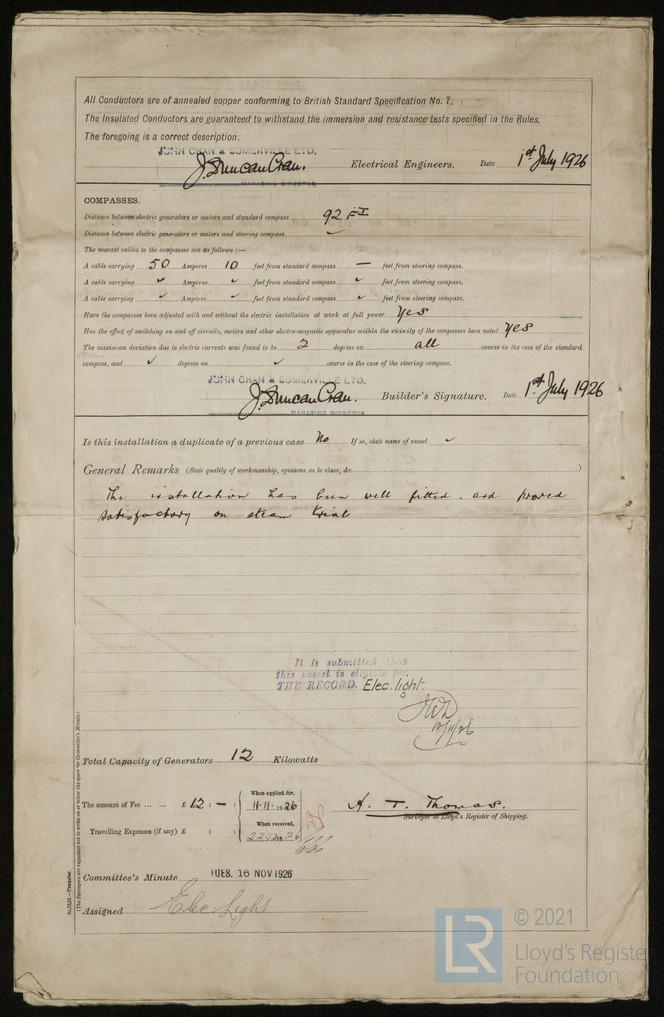 All Conductors are of annealed copper conforming to British Standard Specification No. 7.
The Insulated Conductors are guaranteed to withstand the immersion and resistance tests specified in the Rules.
The foregoing is a correct description.
JOHN CRAN & SOMERVILLE LTD.
J. Duncan Cran. Electrical Engineers. Date 1st July 1926
MANAGING DIRECTOR.
COMPASSES.
Distance between electric generators or motors and standard compass 92 FT
Distance between electric generators or motors and steering compass ✓
The nearest cables to the compasses are as follows:—
A cable carrying 50 Ampères 10 feet from standard compass — feet from steering compass.
A cable carrying ✓ Ampères ✓ feet from standard compass ✓ feet from steering compass.
A cable carrying ✓ Ampères ✓ feet from standard compass ✓ feet from steering compass.
Have the compasses been adjusted with and without the electric installation at work at full power Yes
Has the effect of switching on and off circuits, motors and other electro-magnetic apparatus within the vicinity of the compasses been noted Yes
The maximum deviation due to electric currents was found to be 2 degrees on all course in the case of the standard
compass, and ✓ degrees on ✓ course in the case of the steering compass.
JOHN CRAN & SOMERVILLE LTD.
J. Duncan Cran. Builder's Signature. Date 1st July 1926
MANAGING DIRECTOR
Is this installation a duplicate of a previous case No If so, state name of vessel ✓
General Remarks (State quality of workmanship, opinions as to class, &c. )
The installation has been well fitted and proved
satisfactory on steam trial
It is submitted that
this vessel is eligible for
THE RECORD. Elec. light.
12/11/26
Total Capacity of Generators 12 Kilowatts
The amount of Fee ... ... £ 12 : — :
When applied for,
11.11.1926
A. T. Thomas.
Surveyor to Lloyd's Register of Shipping.
Travelling Expenses (if any) £ : :
When received,
Committee's Minute TUES. 16 NOV 1926
Assigned Elec. Light
(The Surveyors are requested not to write on or below the space for Committee's Minute.)
© 2021
LR
Lloyd's Register
Foundation